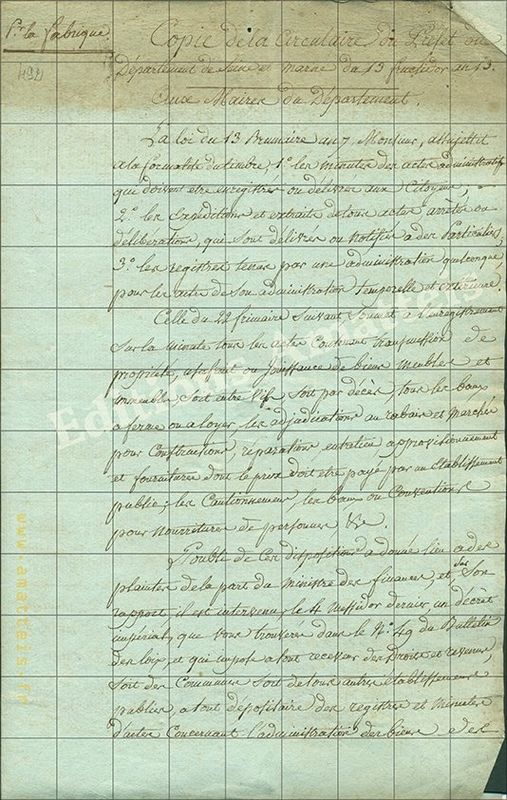 Pr. la fabrique.
Copie de la Circulaire du Préfet du
Département de Seine et Marne du 13 fructidor an 13.
Aux Maires du Département.
La loi du 13 Brumaire an 7, Monsieur, assujettit
a la formalité du timbre, 1.° les minutes des actes administratifs
qui doivent etre enregistrés ou délivrés aux Citoyens,
2.° les Expéditions et extraits de tous actes arretés ou
délibérations, qui sont délivrés ou notifiés a des Particuliers,
3.° les registres tenus par une administration quelconque,
pour les actes de son administration temporelle et exterieure.
Celle du 22 frimaire suivant soumet a l'enregistrement
sur la minute tous les actes Contenant transmission de
propriété, usufruit ou Jouissance de biens meubles et
immeubles soit entre vifs soit par décès, tous les baux
a ferme ou a loyer, les adjudications au rabais et marchés
pour Constructions, réparations entretien approvisionnement
et fournitures dont le prix doit etre payé par un Etablissement
public; les Cautionnemens, les baux ou Conventions
pour Nourriture de personnes, &c.
L'oubli de Ces dispositions a donné lieu a des
plaintes de la part du Ministre des finances, et sur Son
rapport, il est intervenu le 4 Messidor dernier, un décret
impérial, que vous trouverez dans le N.° 49 du Bulletin
des loix, et qui impose a tout receveur des Droits et revenus,
soit des Communes soit de tous autres Etablissemens
publics, a tout dépositaire des registres et minutes
d'actes Concernant l'administration des biens des
Editions Amatteis
www.amatteis.fr